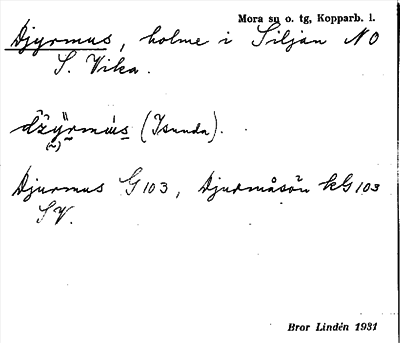 Mora su o. tg, Kopparb. l.
Djyrmus, holme i Siljan NO
S. Vika.
(Isunda).
Djurmus G 103, Djurmåsön kG 103
SV.
Bror Lindén 1931